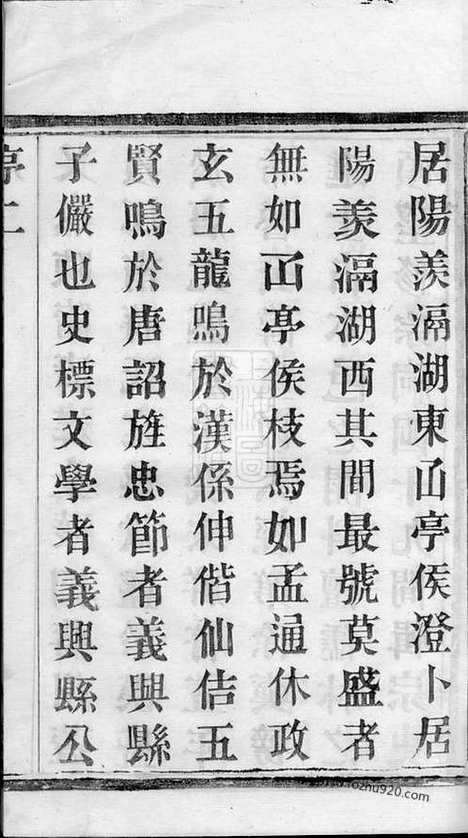 居陽羨滆湖東凾亭侯澄卜居
陽羨滆湖西其間最號莫盛者
無如凾亭侯枝焉如孟通休政
玄五龍鳴於漢係仲偕仙佶五
賢鳴於唐詔旌忠節者義興縣
子儼也史標文學者義興縣公
序二